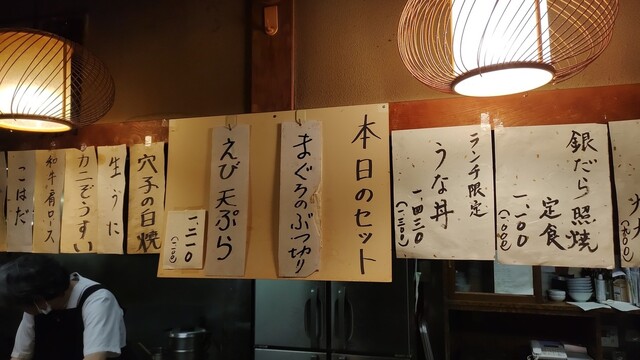 銀だら照焼
定食
一、一〇〇
(一〇〇〇)
ランチ限定
うな丼
一、四三〇
(一三〇〇)
本日のセット
まぐろのぶつ切り
えび天ぷら
一二一〇
(一一〇〇)
穴子の白焼
生うに
カニぞうすい
和牛肩ロース
こはだ